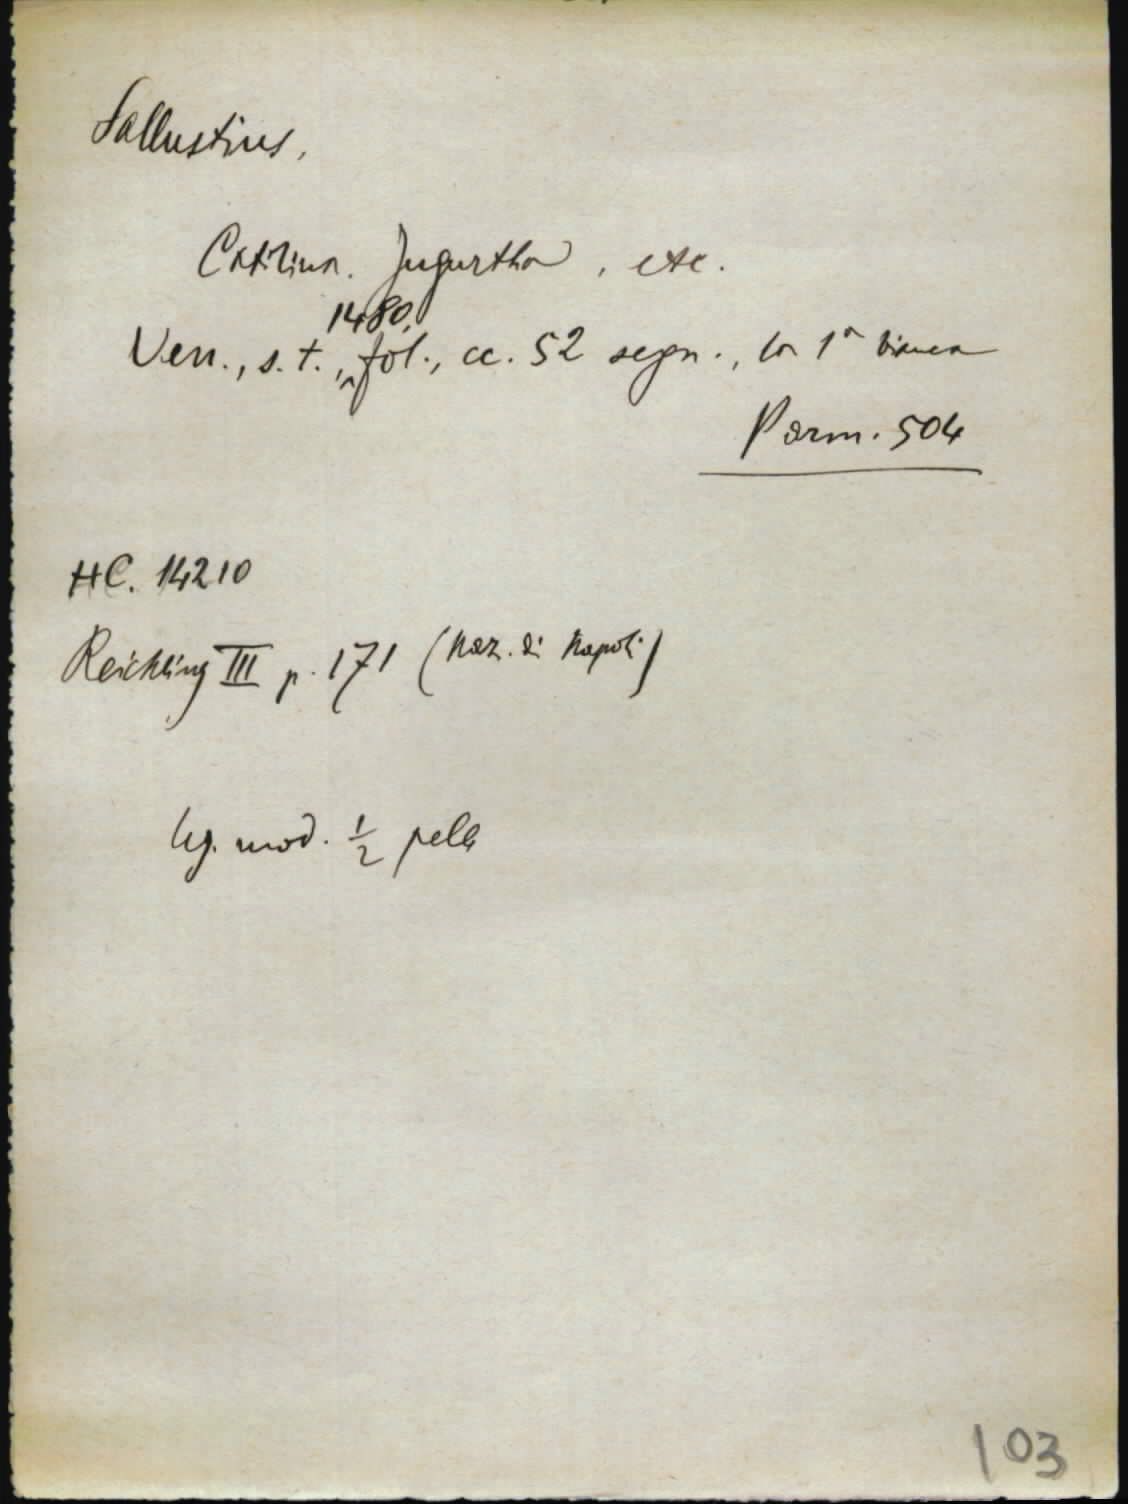 Sallustius,
Catilina. Jugurtha, etc.
Ven., s.t., 1480, fol., cc. 52 segn., la 1ª bianca
Parm. 504
HC. 14210
Reichling III p. 171 (Naz. di Napoli)
leg. mod. ½ pelle
103